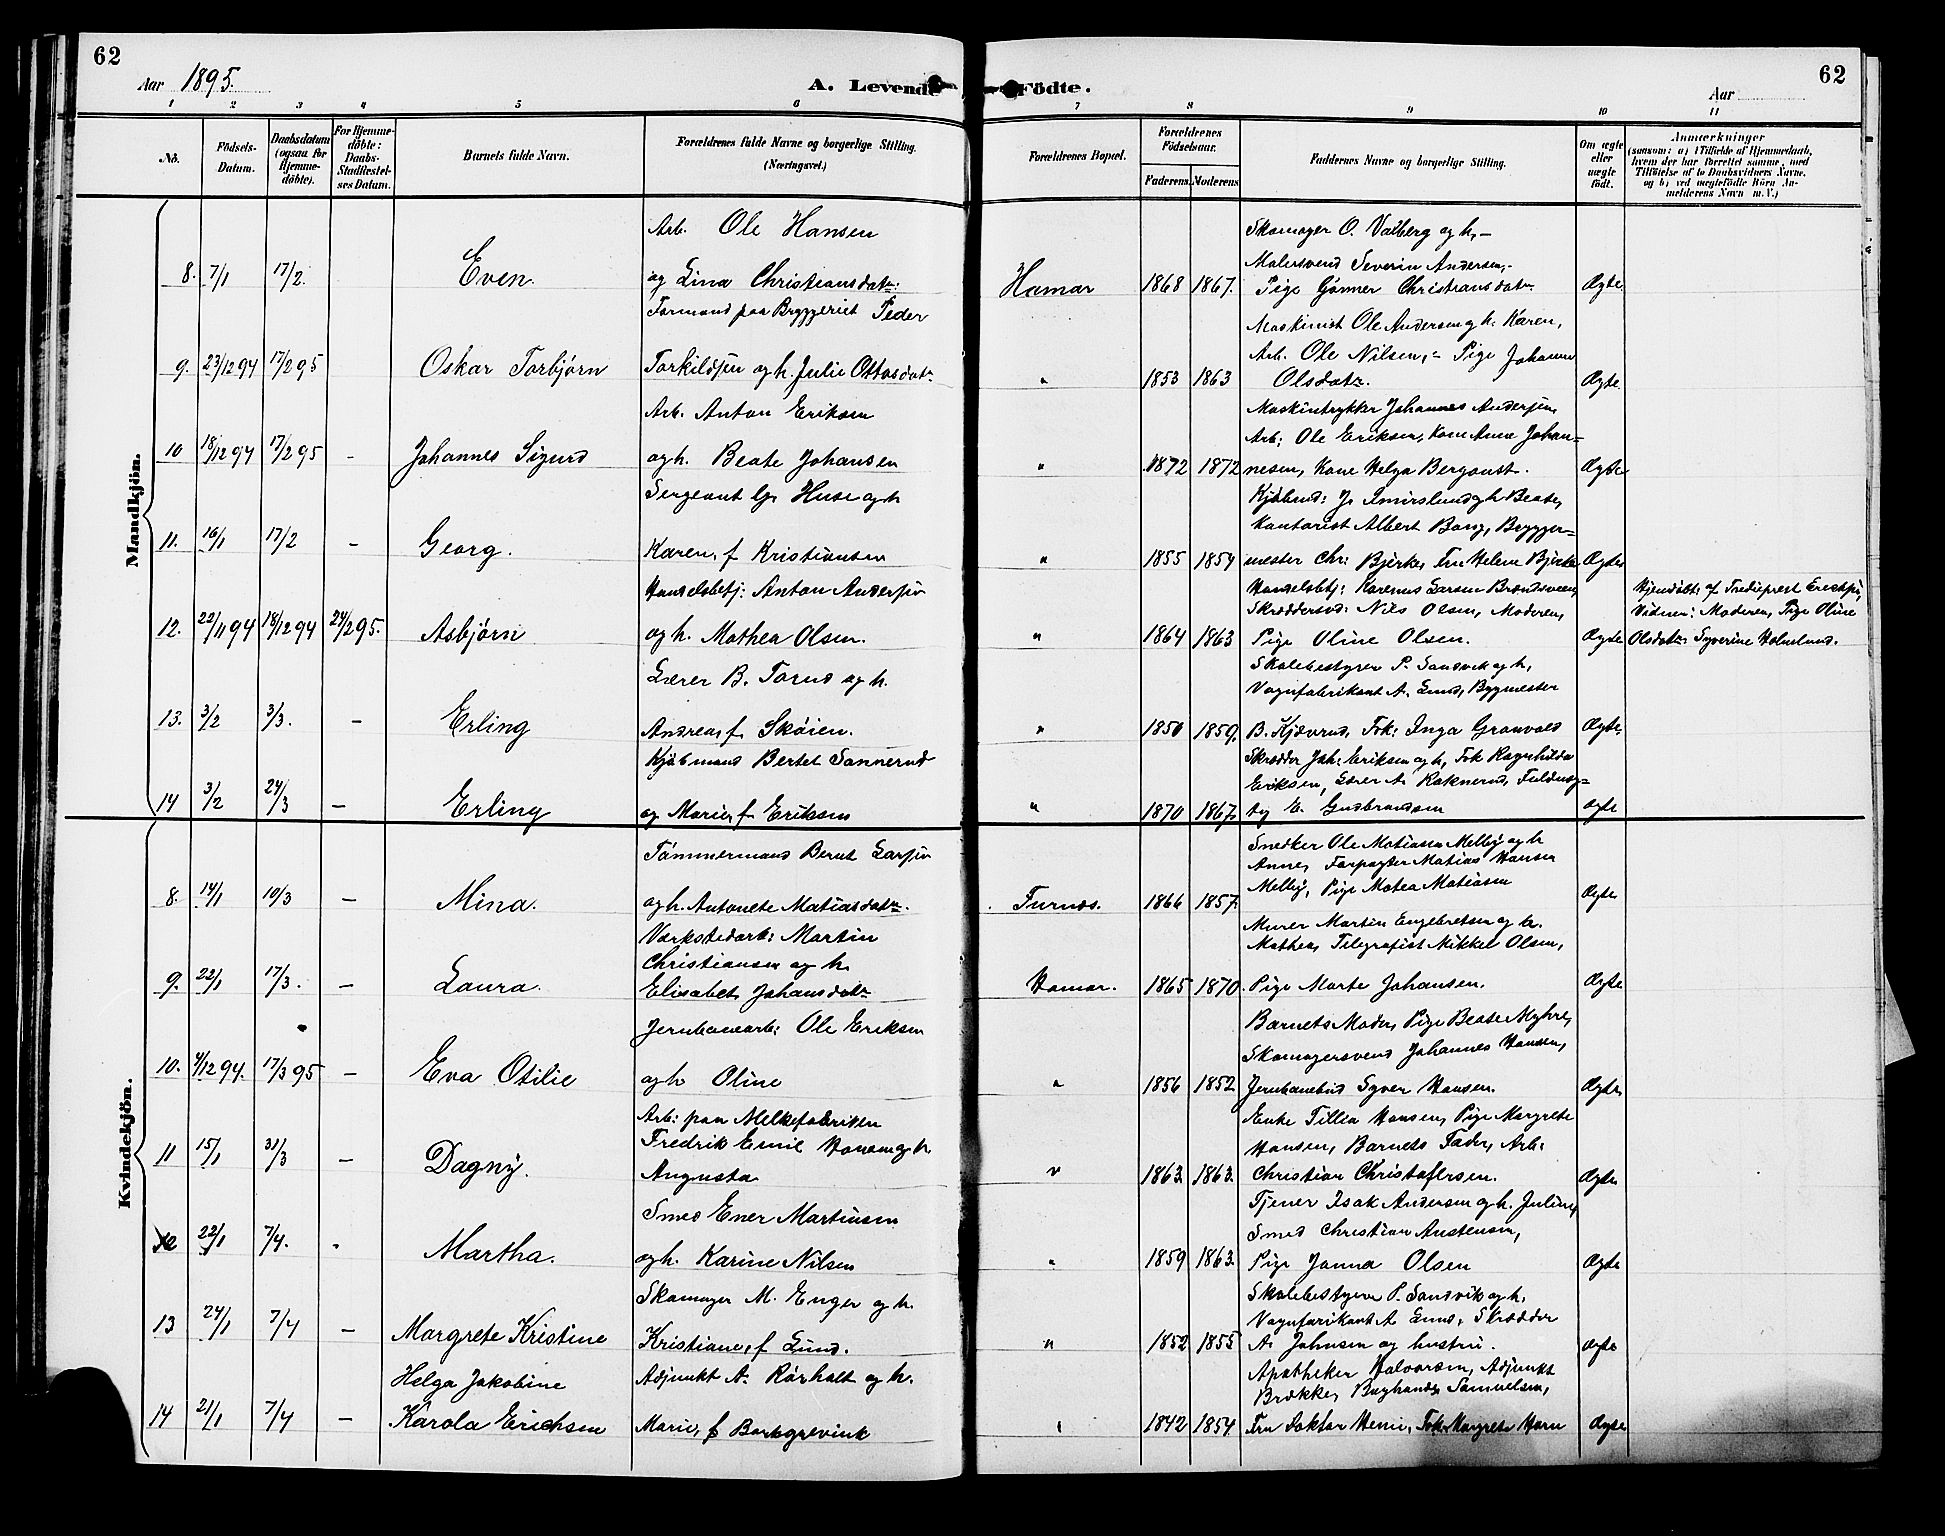 62
Aar 1895.
A. Levende
1 2 3 4 5 6
No.
Födsels-Datum.
Daabsdatum (ogsaa for Hjemme-döbte).
For Hjemme-döbte: Daabs-Stadfæstel-ses Datum.
Barnets fulde Navn.
Forældrenes fulde Navne og borgerlige Stilling. (Næringsvei.)
Födte.
62
Aar
7 8 9 10 11
Forældrenes Bopæl.
Forældrenes Födselsaar.
Faderens Moderens
Faddernes Navne og borgerlige Stilling.
Om ægte eller uægte födt.
Anmærkninger
(saasom: a) i Tilfælde af Hjemmedaab, hvem der har forrettet samme, med Tilföielse af to Daabsvidners Navne, og b) ved uægtefödte Börn An-melderens Navn m. V.)
Mandkjön.
Arb. Ole Hansen
Skomager O. Valberg og h, –
Malersvend Severin Andersen,-
8. 7/1 17/2. Even. og Lina Christiansdatr: Hamar 1868 1867. Pige Gønner Christiansdatr. Ægte.
Formand paa Bryggeriet Peder
Maskinist Ole Andersen og h. Karen,
Arb. Ole Nilsen, - Pige Johanne
9. 23/12 94 17/2 95 Oskar Torbjørn Torkildsen og h. Julie Ottosdatr. " 1853 1863 Olsdatr. Ægte.
Arb. Anton Eriksen
Maskintrykker Johannes Andersen,
Arb: Ole Eriksen, Kone Anne Johan=
10 18/12 94 17/2 95 - Johannes Sigurd og h. Beate Johansen " 1872 1872 nesen, Kone Helga Bergquist. Ægte
Sergeant Huse og h
Beate,
Kontorist Albert Bang, Brygger-
11. 16/1 17/2 - Georg. Karen, f Kristiansen " 1855 1859 mester Chr: Bjerke, Fru Helene Bjerke Ægte
Handelsbetj: Anton Andersen
Handelsbtj: Karenus Larsen
Skræddersvd: Nils Olsen, Moderen,
Hjemdøbt af Trediepræst
Vidner: Moderen, Pige Oline
12. 22/11 94 18/12 94 24/2 95. Asbjørn og h. Mathea Olsen. " 1864 1863 Pige Oline Olsen. Ægte Olsdatr: Syverine
Lærer B. Torud og h.
Skolebestyrer P. Sandvik og h,
Vognfabrikant A. Lund, Bygmester
13. 3/2 3/3. - Erling Andrea, f Skøien. " 1850 1859. B. Kjæverud, Frk: Inga Granvold Ægte.
Kjøbmand Bertel Sannerud
Skrædder Joh: Eriksen og h, Frk Ragnhilda
Eriksen, Lærer A. Raknerud, Fuldmæg-
14 3/2 24/3 - Erling og Marie, f Eriksen " 1870 1867. tig E. Gudbrandsen ægte
Kvindekjön.
Tømmermand Bernt Larsen
Snedker Ole Matiasen Melby og h
Anne, Forpagter Matias Hansen
8. 14/1 10/3 - Mina. og h. Antonete Matiasdatr. Furnæs. 1866 1857. Melby, Pige Matea Matiasen Ægte
Værkstedarb: Martin
Christiansen og h.
Murer Martin Engebretsen og h.
Mathea, Telegrafist Mikkel Olsen,
9. 22/1 17/3. - Laura. Elisabet Johansdatr Hamar. 1865 1870. Pige Marte Johansen. Ægte
Jernbanearb: Ole Eriksen
Barnets Moder, Pige Beate Myhre,
Skomagersvend Johannes Hansen,
10. 4/12 94. 17/3 95 - Eva Otilie og h Oline " 1856 1852 Jernbanebud Syver Hansen. Ægte
Arb: paa Melkefabriken
Fredrik Emil Hansen og h.
Enke Tillea Hansen, Pige Margrete
Hansen, Barnets Fader, Arb:
11 15/1 31/3 - Dagny. Augusta " 1863. 1863. Christian Christofersen. Ægte
Smed Ener Martinsen
Tjener Isak Andersen og h. Juline,
Smed Christian Austensen,
12 22/1 7/4. Martha. og h. Karine Nilsen " 1859 1863. Pige Janna Olsen Ægte
Skomager M. Enger og h.
Skolebestyrer P. Sandvik og h.
Vognfarikant A Lund, Skrædder
13 24/1 7/4 - Margrete Kristine Kristiane, f Lund. " 1852 1855 A. Johnsen og hustru. Ægte
Helga Jakobine Adjunkt A. Rørholt og h.
Apotheker Halvorsen, Adjunkt
Brække, Boghandr Samuelsen,
14 21/1 7/4 - Karola Erichsen Marie, f Borkgrevink " 1842 1854. Fru Doktor, Frk. Margrete Horn Ægte